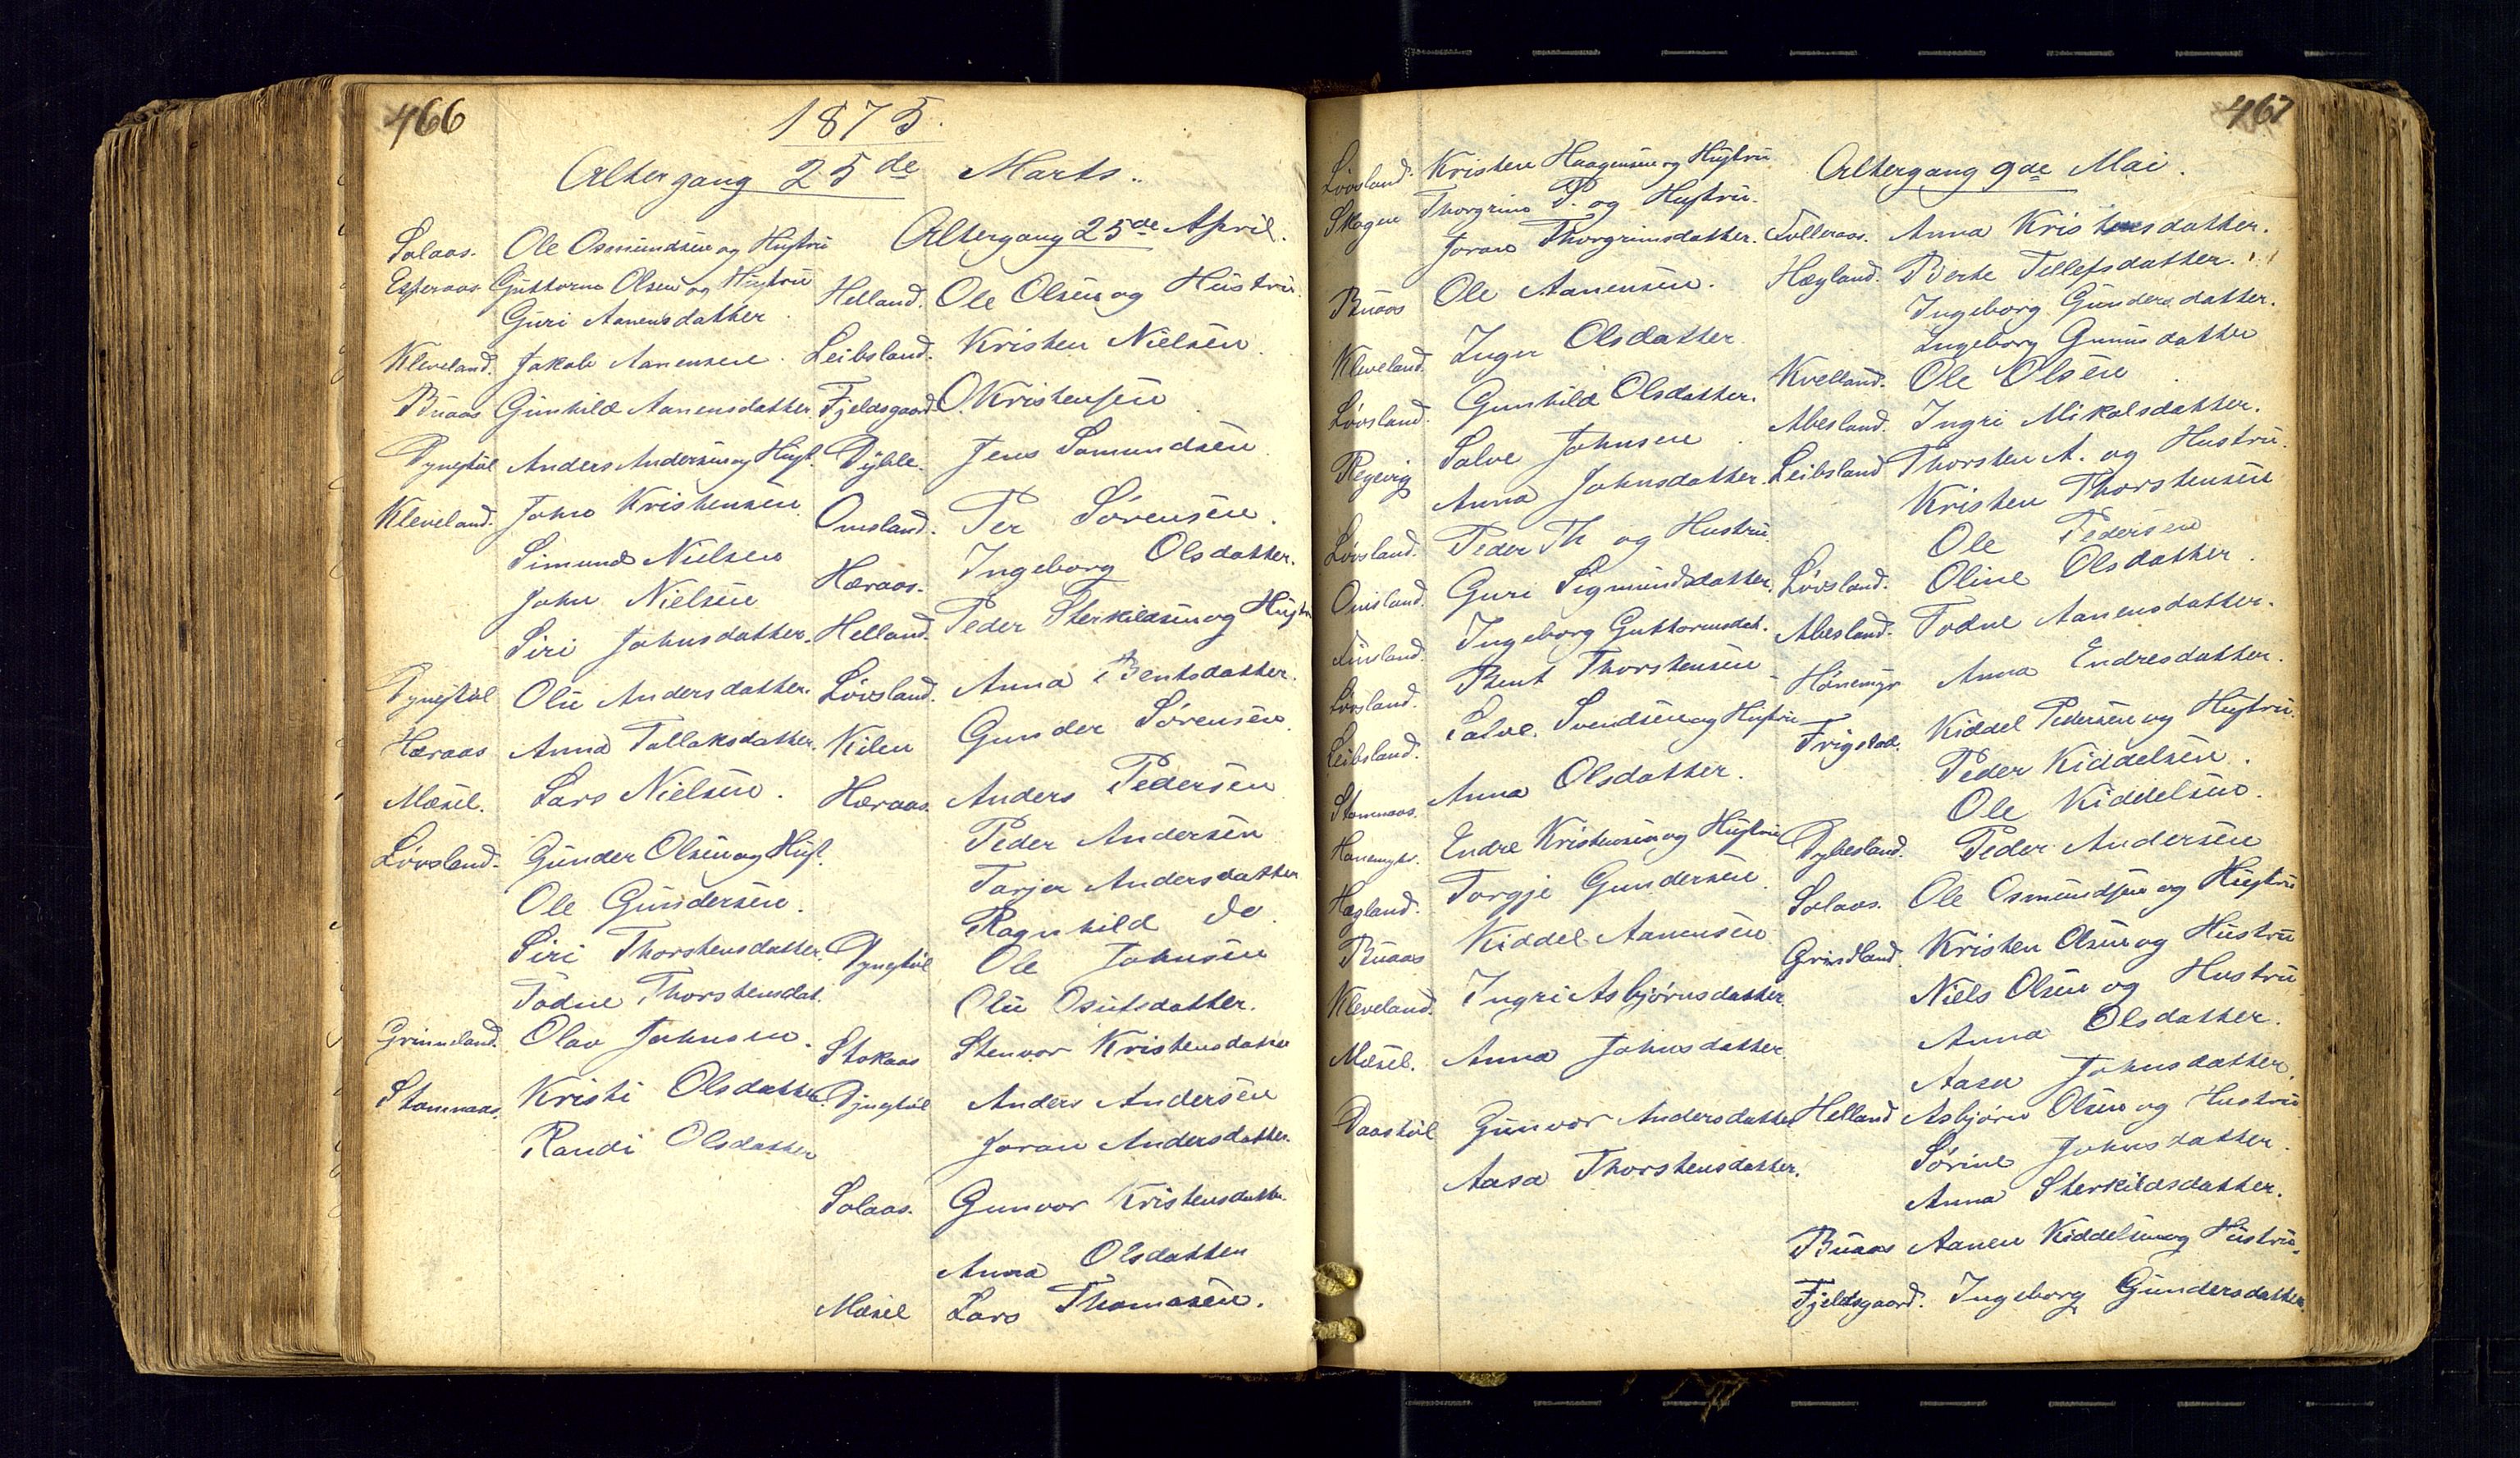 466
1875.
Altergang 25de Marts.
Solaas. Ole Osmundsen og Hustru
Esperaas. Guttorm Olsen og Hustru
Guri Aanensdatter.
Kleveland. Jakob Aanensen.
Buaas Gunhild Aanensdatter.
Dynestøl Anders Andersen og Hust.
Kleveland. John Kristensen.
Simund Nielsen
John Nielsen
Siri Johnsdatter.
Dynestøl Olii Andersdatter.
Heraas Anna Tallaksdatter.
Mæsel. Lars Nielsen.
Løvsland. Gunder Olsen og Hust.
Ole Gundersen.
Siri Thorstensdatter.
Todne Thorstensdat.
Grimeland. Olav Johnsen.
Stamnaas. Kristi Olsdatter.
Randi Olsdatter
Altergang 25de April.
Helland. Ole Olsen og Hustru.
Leibsland. Kristen Nielsen.
Fjeldsgaard. O. Kristensen
Jens Samundsen
Omsland. Per Sørensen.
Heraas. Ingeborg Olsdatter.
Helland. Peder Sterkildsen og Hustru
Løvsland. Anna Bentsdatter.
Kilen Gunder Sørensen
Heraas. Anders Pedersen
Peder Andersen
Tarjer Andersdatter
Ragnhild do.
Dynestøl Ole Johnsen
Olii Osulsdatter.
Stokaas Stenvor Kristensdatter
Dynestøl Anders Andersen
Joran Andersdatter.
Solaas. Gunvor Kristensdatter.
Anna Olsdatter
Mæsel Lars Thomasen.
467
Løvsland. Kristen Haagensen og Hustru
Skogen Thorgrim P. og Hustru.
Joran Thorgrimsdatter.
Buaas Ole Aanensen.
Kleveland. Inger Olsdatter
Løvsland. Gunhild Olsdatter.
Salve Johnsen.
Anna Johnsdatter.
Løvsland. Peder Th og Hustru.
Omsland. Guri Sigmundsdatter.
Finsland. Ingeborg Guttormsdat.
Løvsland. Bent Thorstensen
Leibsland. Salve Svendsen og Hustru
Stamnaas. Anna Olsdatter.
Hønemyr. Endre Kristensen og Hustru
Hægland. Torgje Gundersen.
Buaas Kiddel Aanensen
Kleveland. Ingri Asbjørnsdatter.
Mæsel. Anna Johnsdatter.
Daastøl Gunvor Andersdatter
Aasa Thorstensdatter.
Altergang 9de Mai.
Folleraas. Anna Kristensdatter.
Hægland. Berte Tellefsdatter.
Ingeborg Gundersdatter.
Ingeborg Gunnisdatter
Kvelland. Ole Olsen
Abesland. Ingri Mikalsdatter.
Leibsland Thorsten A. og Hustru.
Kristen Thorstensen
Ole Pedersen
Løvsland. Oline Olsdatter.
Abesland. Todne Aanensdatter.
Hønemyr Anna Endresdatter.
Frigstad. Kiddel Pedersen og Hustru.
Peder Kiddelsen.
Ole Kiddelsen.
Dybesland. Peder Andersen
Solaas. Ole Osmundsen og Hustru
Grindland. Kristen Olsen og Hustru
Niels Olsen og Hustru
Anna Olsdatter.
Aasa Johnsdatter.
Helland Asbjørn Olsen og Hustru
Sørine Johnsdatter.
Anna Sterkildsdatter.
Buaas Aanen Kiddelsen og Hustru.
Fjeldsgaard. Ingeborg Gundersdatter.